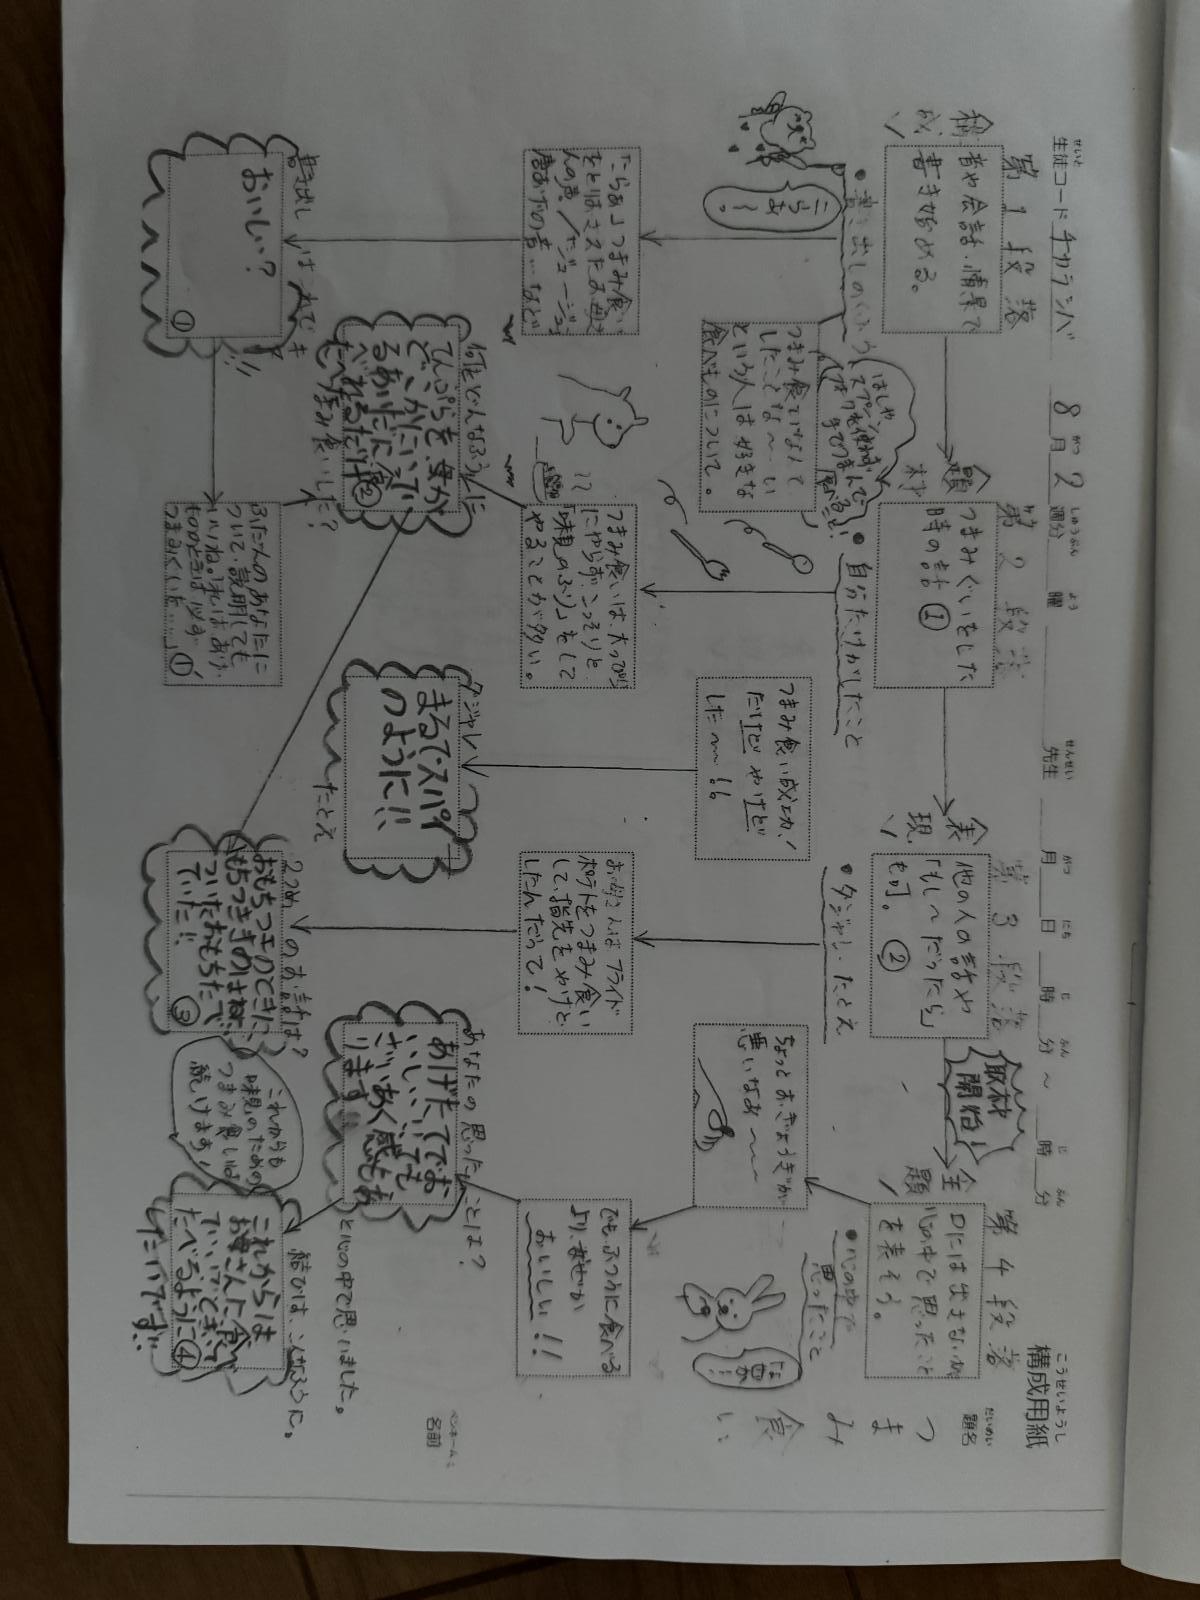 構成用紙
こうせいようし
題名
だいめい
つまみ食い
名前
ペンネーム:
生徒コード チカランバ
せいと
8月2週分
がつ
しゅうぶん
曜
よう
先生
せんせい
月 日 時 分 ~ 時 分
がつ
にち
じ
ふん
じ
ふん
第1段落
構成
音や会話・情景で
書き始める。
●書き出しのくふう
こらあ~。
「こらあ」つまみ食い
はしや
スプーン
フォークも使わず
手でつまんで
食べること!
つまみ食いなんて
したことな~い
という人は好きな
食べものについて。
書き出しはこれで
おいしい?
①
ふだんのあなたに
ついて、説明しても
いいね。
つまみぐい
第2段落
題材
つまみぐいをした
時の話①
●自分だけがしたこと
つまみ食いは、
にやらず、こっそりと
「味見のふり」をして
やることが多い。
何をどんなふうに
つまみ食いした?
てんぷらを、母が
②
つまみ食い成功!
だけどやけど
した~~!!
ダジャレ
まるでスパイ
のように!!
たとえ
第3段落
表現
他の人の話や
「もし~だったら」
も可。②
●ダジャレ・たとえ
取材
開始!
お母さんはフライド
ポテトをつまみ食い
して、指先をやけど
したんだって!
2つめのお話は?
おもちつきのときに、
ついたおもちたべ
ていた!!
③
第4段落
主題
口には出さないが
心の中で思ったこと
を表そう。
●心の中で
思ったこと
ちょっとおぎょうぎが
悪いなあ~~
でも、ふつうに食べる
より、なぜか
おいしい!!
あなたの思ったことは?
あげたてでお
いしい、いても
ざいあく感もあ
ります
と心の中で思いました。
これからも
味見のための
つまみ食いは
続けます!
結びは、こんなふうに。
これからは
お母さんに
たべるように④
したいです。